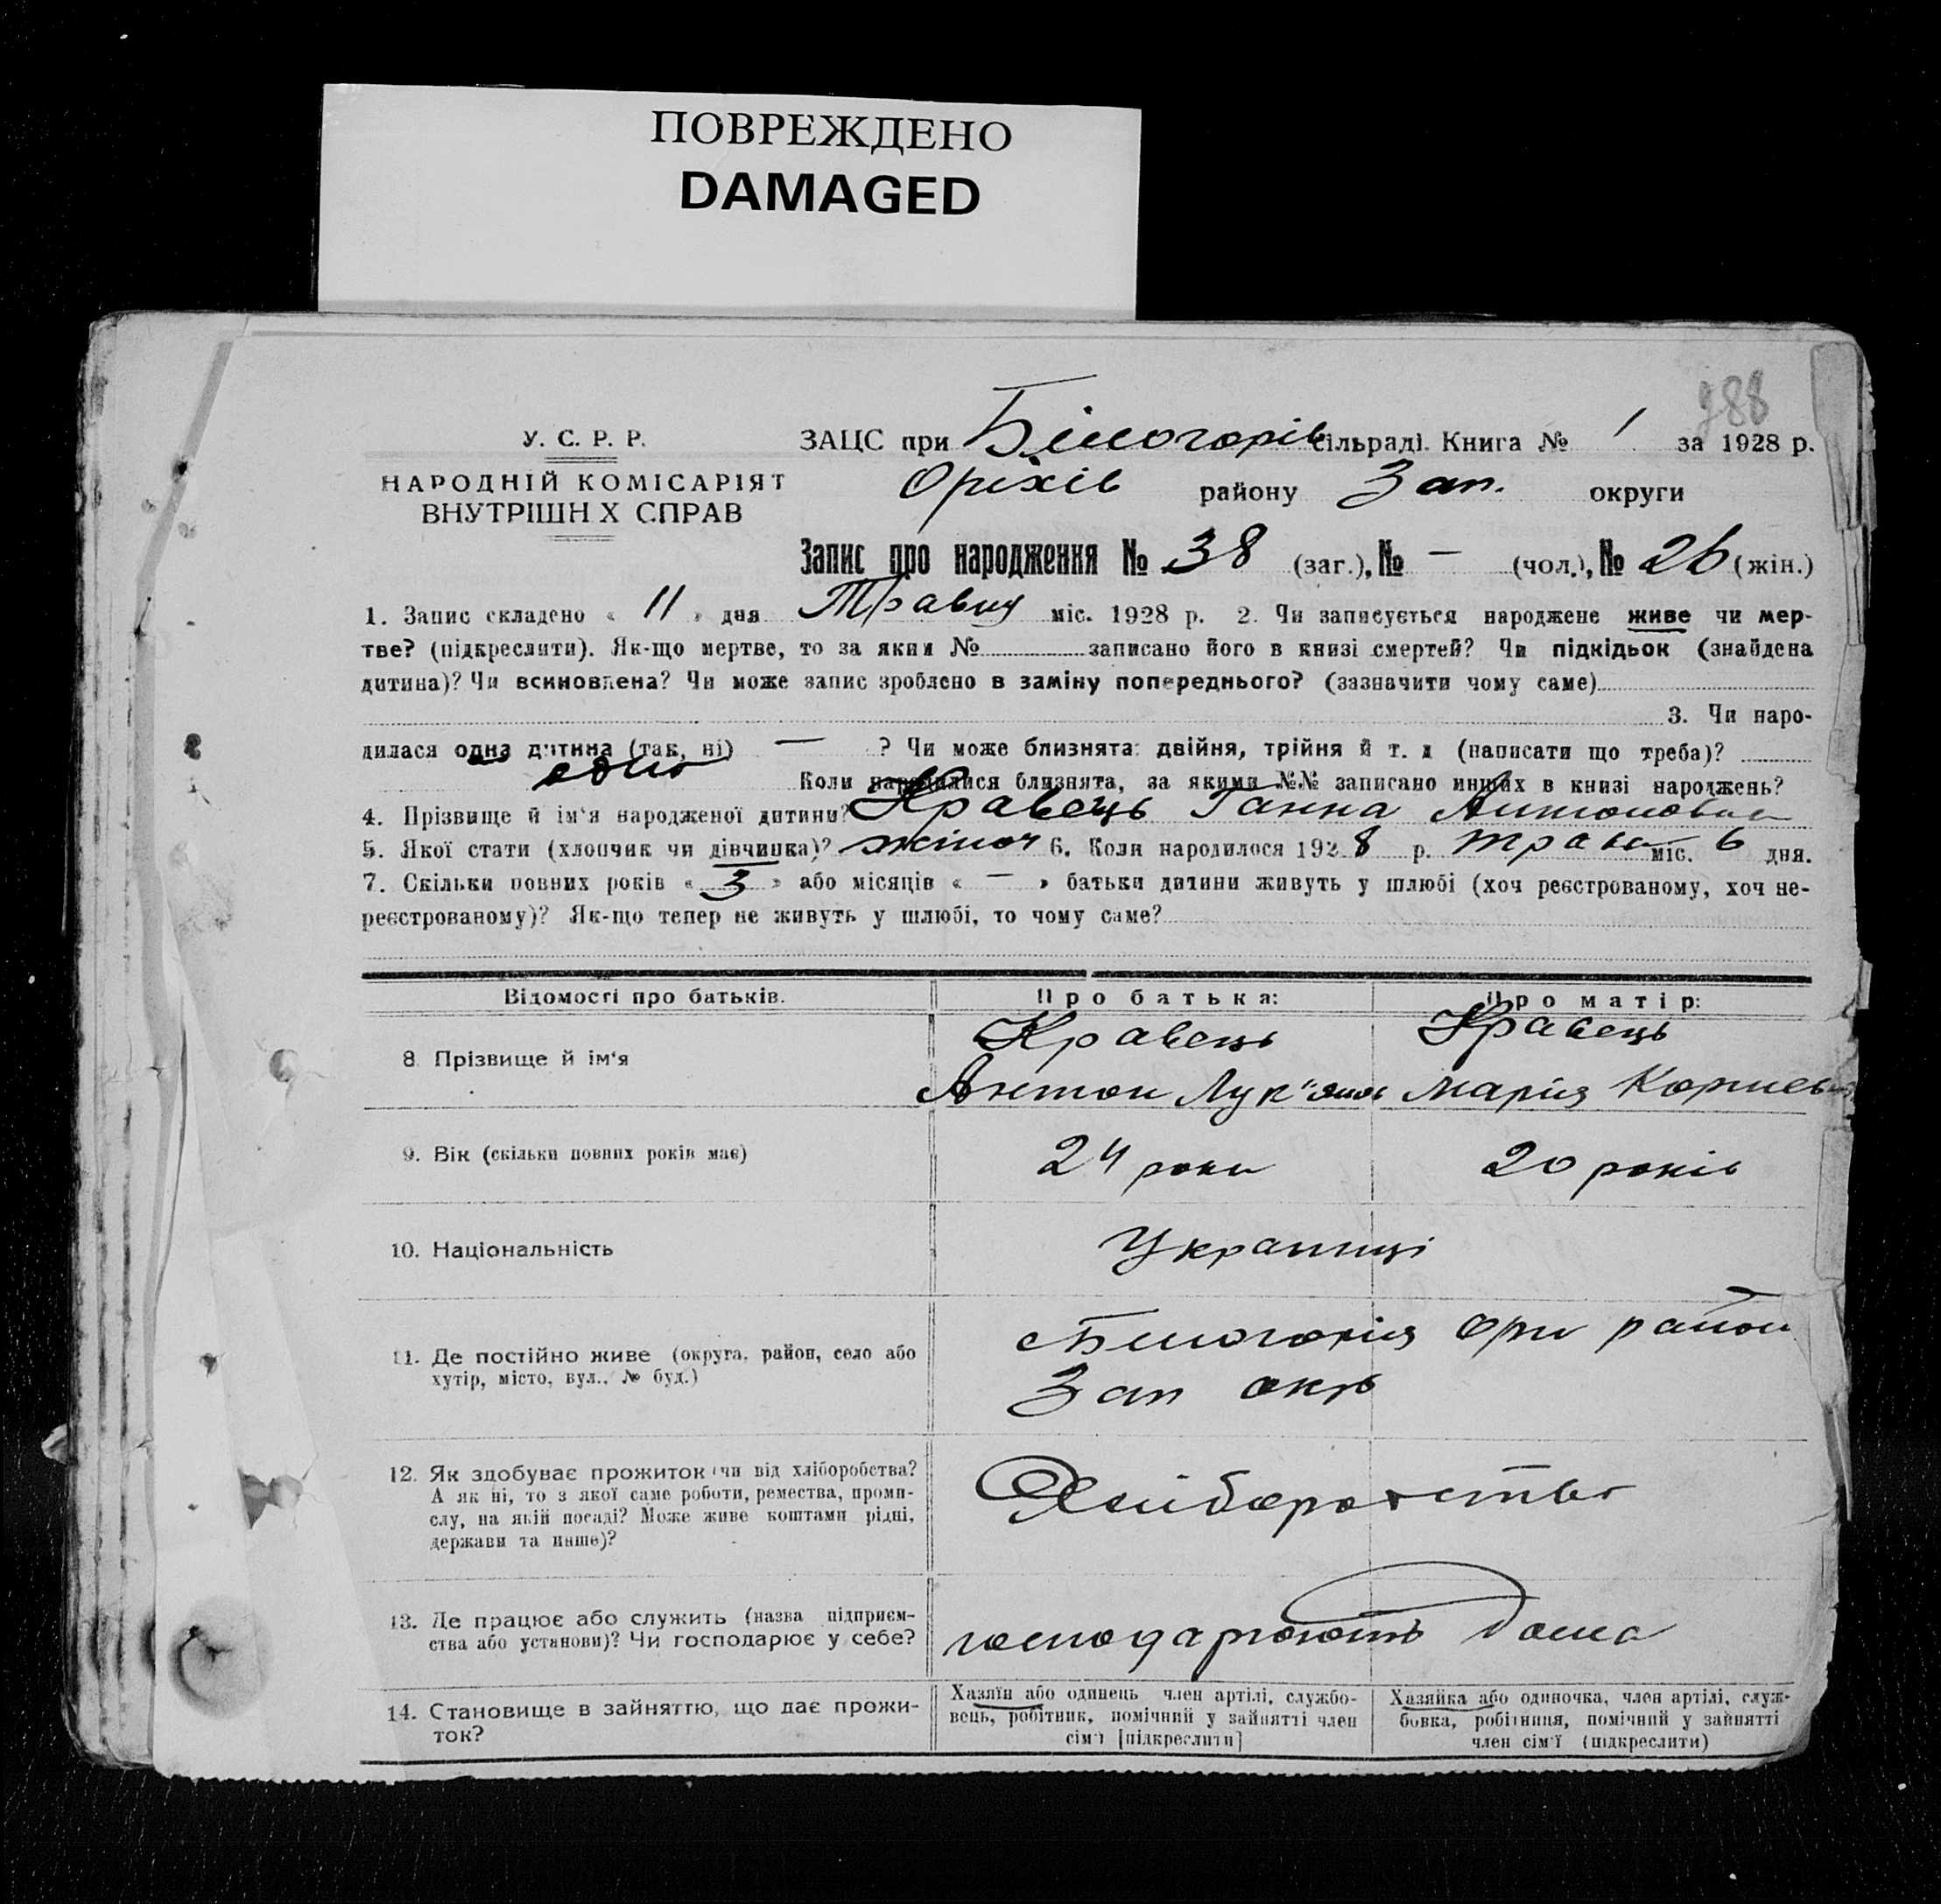 ПОВРЕЖДЕНО
DAMAGED
288
У. С. Р. Р.
НАРОДНІЙ КОМІСАРІЯТ
ВНУТРІШН Х СПРАВ
ЗАЦС при Білогорів сільраді. Книга № 1 за 1928 р.
Оріхів району Зап. округи
Запис про народження № 38 (заг.), № — (чол.), № 26 (жін.)
1. Запис складено « 11 » дня Травня міс. 1928 р. 2. Чи записується народжене живе чи мер-
тве? (підкреслити). Як-що мертве, то за яким № записано його в книзі смертей? Чи підкідьок (знайдена
дитина)? Чи всиновлена? Чи може запис зроблено в заміну попереднього? (зазначити чому саме)
3. Чи наро-
дилася одна дитина (так, ні) — ? Чи може близнята: двійня, трійня й т. д (написати що треба)?
одно Коли народилися близнята, за якими №№ записано инших в книзі народжень?
4. Прізвище й ім'я народженої дитини? Кравець Ганна Антоновна
5. Якої стати (хлопчик чи дівчинка)? жіноч 6. Коли народилося 1928 р. трав міс. 6 дня.
7. Скільки повних років « 3 » або місяців « — » батьки дитини живуть у шлюбі (хоч реєстрованому, хоч не-
реєстрованому)? Як-що тепер не живуть у шлюбі, то чому саме?
Відомості про батьків. Про батька: Про матір:
8 Прізвище й ім'я Кравець Кравець
Антон Лук"янов Марія Корнеев
9. Вік (скільки повних років має) 24 роки 20 років
10. Національність Українці
11. Де постійно живе (округа, район, село або
хутір, місто, вул., № буд.)
Білогорія Орі район
Зап окр
12. Як здобуває прожиток (чи від хліборобства?
А як ні, то з якої саме роботи, ремества, проми-
слу, на якій посаді? Може живе коштами рідні,
держави та инше)?
Хліборобство
13. Де працює або служить (назва підприєм-
ства або установи)? Чи господарює у себе?
господарюють дома
14. Становище в зайняттю, що дає прожи-
ток?
Хазяїн або одинець член артілі, службо-
вець, робітник, помічний у зайнятті член
сім'ї [підкреслити]
Хазяйка або одиночка, член артілі, служ-
бовка, робітниця, помічний у зайнятті
член сім'ї (підкреслити)